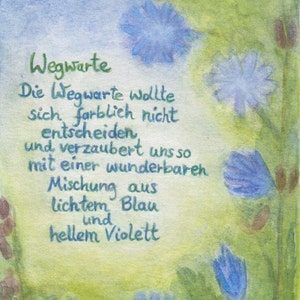 Wegwarte
Die Wegwarte wollte
sich farblich nicht
entscheiden
und verzaubert uns so
mit einer wunderbaren
Mischung aus
lichtem Blau
und
hellem Violett